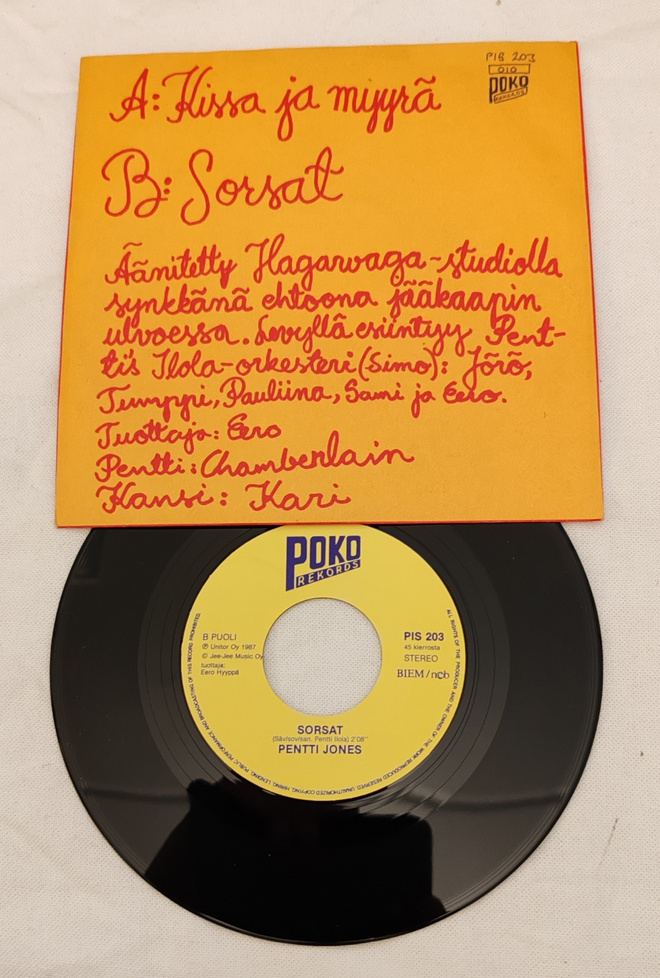 PIS 203
010
POKO
REKORDS
A: Kissa ja myyrä
B: Sorsat
Äänitetty Hagarwaga-studiolla
synkkänä ehtoona jääkaapin
ulvoessa. Levyllä esiintyy Pent-
ti's Ilola-orkesteri (Simo): Jörö,
Tumppi, Pauliina, Sami ja Eero.
Tuottaja: Eero
Pentti: Chamberlain
Kansi: Kari
POKO
REKORDS
B PUOLI
℗ Unitor Oy 1987
© Jee-Jee Music Oy
tuottaja:
Eero Hyyppä
PIS 203
45 kierrosta
STEREO
BIEM/ncb
SORSAT
(Säv/sov/san. Pentti Ilola) 2'08"
PENTTI JONES
ALL RIGHTS OF THE PRODUCER AND THE OWNER OF THE WORK REPRODUCED RESERVED. UNAUTHORIZED COPYING, HIRING, LENDING, PUBLIC PERFORMANCE AND BROADCASTING OF THIS RECORD PROHIBITED